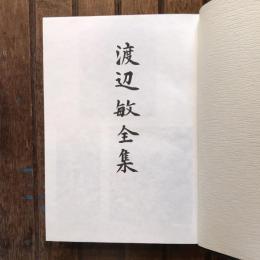 渡辺敏全集